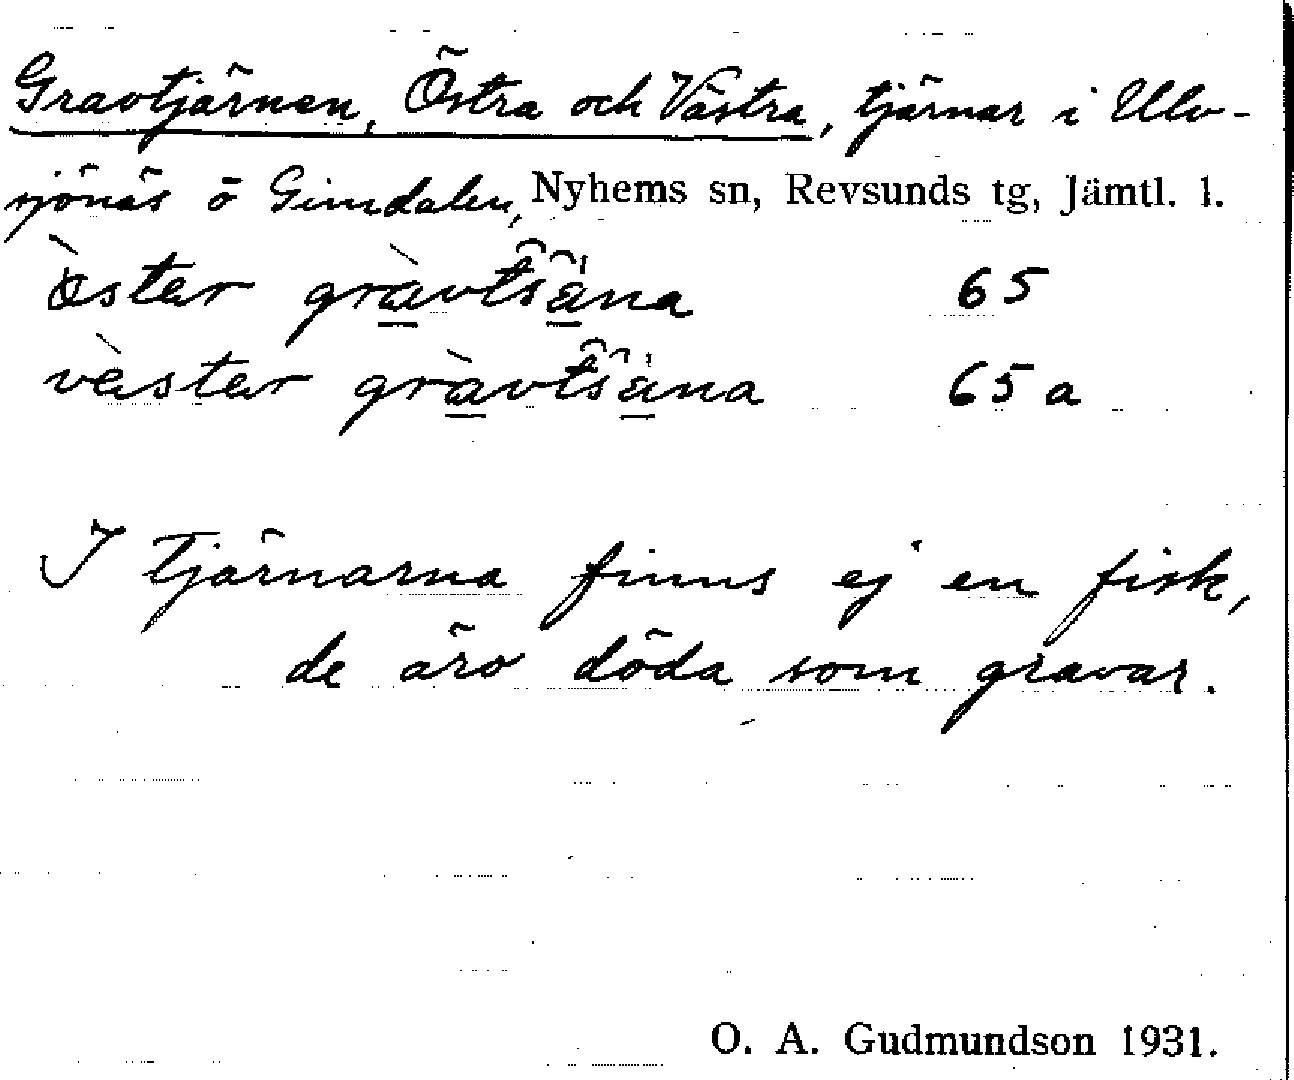 Gravtjärnen, Östra och Västra, tjärnar i Ulv-
sjönäs ö Gimdalen, Nyhems sn, Revsunds tg, Jämtl. l.
òstar gràvtŝäna 65
vàstar gràvtŝäna 65 a
I tjärnarna finns ej en fisk,
de äro döda som gravar.
O. A. Gudmundson 1931.